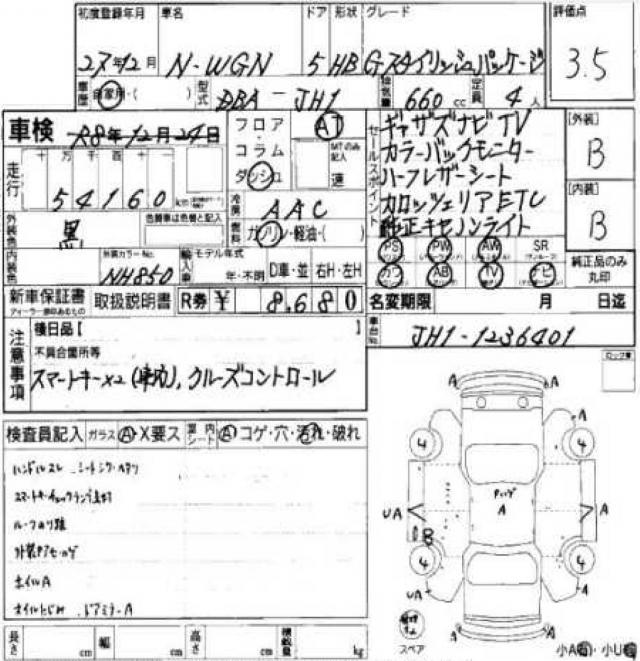 初度登録年月 車名 ドア 形状 グレード 評価点
27年12月 N-WGN 5 HB Gスタイリッシュパッケージ 3.5
車歴 自家用・( ) 型式 DBA-JH1 排気量 660 cc 定員 4人
車検 R8年12月24日
フロア AT
コラム MTのみ記入
ダッシュ 速
セールスポイント
ギャザズナビTV
カラーバックモニター
ハーフレザーシート
カロッツェリアETC
純正キセノンライト
[外装]
B
[内装]
B
走行 十 万 千 百 十 一
54160 km
冷房 AAC
燃料 ガソリン・軽油・( )
外装色 黒 色替車は色替と記入
内装色 外装カラーNo. NH850
輸入車 モデル年式
年・不明 D車・並 右H・左H
PS PW AW SR
カワ AB TV ナビ
純正品のみ丸印
新車保証書 取扱説明書 R券 ¥ 8,680
ディーラー捺印あるもの
名変期限 月 日迄
車台No. JH1-1236401
注意事項
後日品【 】
不具合箇所等
スマートキー×2(車内), クルーズコントロール
検査員記入 ガラス A・X要ス 室内シート A コゲ・穴・汚れ・破れ
ハンドルスレ シートシワ・ヘタリ
ルーフのり跡
ホイルA
ドアミラーA
A A
A A
4 4
UA A A
4 4
UA A
A A
スペア
小A 小U
長さ cm 幅 cm 高さ cm 積載量 kg